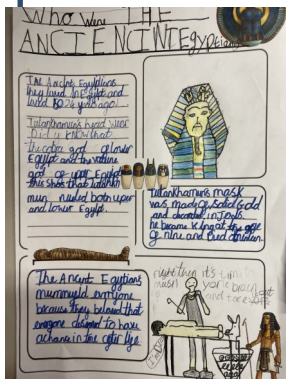 Who were THE
ANCIENCINT Egyptians
The Ancient Egyptians
they lived in Egypt and
lived years ago
Tutankhamuns head wear
Did u know that
the cobra god of lower
Egypt and the vulture
god of uper Egypt
this shos that tutankh
mun ruled both uper
and lower Egypt.
Tutankhamun's mask
was made of solid gold
and decorated in Jewels.
he became king at the age
of nine and died
The Ancient Egytians
mummyfid everyone
because they belived that
everyone deserved to have
a chance in the after life.
right then it's time to
mush your brain out
and